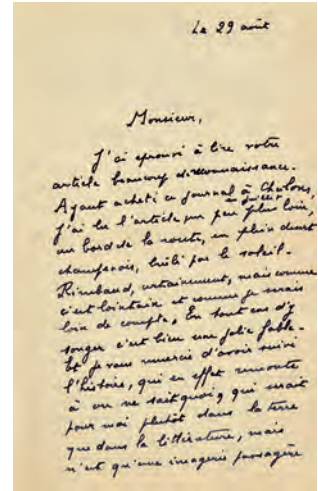 Le 29 août
Monsieur,
J'ai éprouvé à lire votre
article beaucoup de reconnaissance.
Ayant acheté ce journal à Chalons,
en juillet
j'ai lu l'article un peu plus loin,
au bord de la route, en plein désert
champenois, brûlé par le soleil.
Rimbaud, certainement, mais comme
c'est lointain et comme je serais
loin de compte. En tout cas d'y
songer c'est bien une jolie fable.
Et je vous remercie d'avoir suivi
l'histoire, qui en effet remonte
à on ne sait quoi, qui serait
pour moi plutôt dans la terre
que dans la littérature, mais
n'est qu'une imagerie passagère